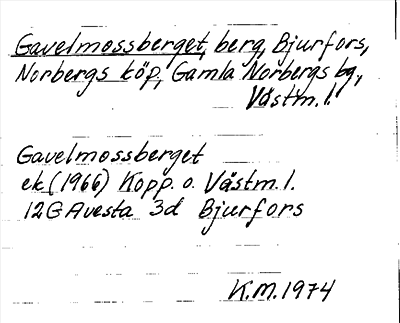 Gavelmossberget, berg, Bjurfors,
Norbergs köp, Gamla Norbergs bg,
Västm. l.
Gavelmossberget
ek (1966) Kopp. o. Västm. l.
12G Avesta 3d Bjurfors
K.M. 1974